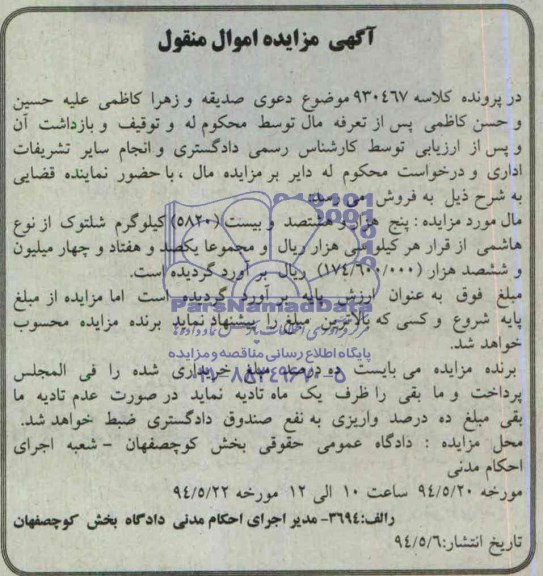 آگهی مزایده اموال منقول
در پرونده کلاسه ۹۳۰٤٦۷ موضوع دعوی صدیقه و زهرا کاظمی علیه حسین
و حسن کاظمی پس از تعرفه مال توسط محکوم له و توقیف و بازداشت آن
و پس از ارزیابی توسط کارشناس رسمی دادگستری و انجام سایر تشریفات
اداری و درخواست محکوم له دایر بر مزایده مال ، با حضور نماینده قضایی
به شرح ذیل به فروش می رسد.
مال مورد مزایده : پنج هزار و هشتصد و بیست (۵۸۲۰) کیلوگرم شلتوک از نوع
هاشمی از قرار هر کیلو سی هزار ریال و مجموعا یکصد و هفتاد و چهار میلیون
و ششصد هزار (۱۷٤/٦۰۰/۰۰۰) ریال بر آورد گردیده است.
مبلغ فوق به عنوان ارزش پایه بر آورد گردیده است اما مزایده از مبلغ
ParsNamadData
پایه شروع و کسی که بالاترین مبلغ را پیشنهاد نماید برنده مزایده محسوب
خواهد شد.
پایگاه اطلاع رسانی مناقصه و مزایده
برنده مزایده می بایست ده درصد مبلغ خریداری شده را فی المجلس
۰۲۱-۸۸۳٤۹٦۷۰-۵
پرداخت و ما بقی را ظرف یک ماه تادیه نماید در صورت عدم تادیه ما
بقی مبلغ ده درصد واریزی به نفع صندوق دادگستری ضبط خواهد شد.
محل مزایده : دادگاه عمومی حقوقی بخش کوچصفهان - شعبه اجرای
احکام مدنی
مورخه ۹٤/۵/۲۰ ساعت ۱۰ الی ۱۲ مورخه ۹٤/۵/۲۲
رالف:۳٦۹٤- مدیر اجرای احکام مدنی دادگاه بخش کوچصفهان
تاریخ انتشار:۹٤/۵/٦